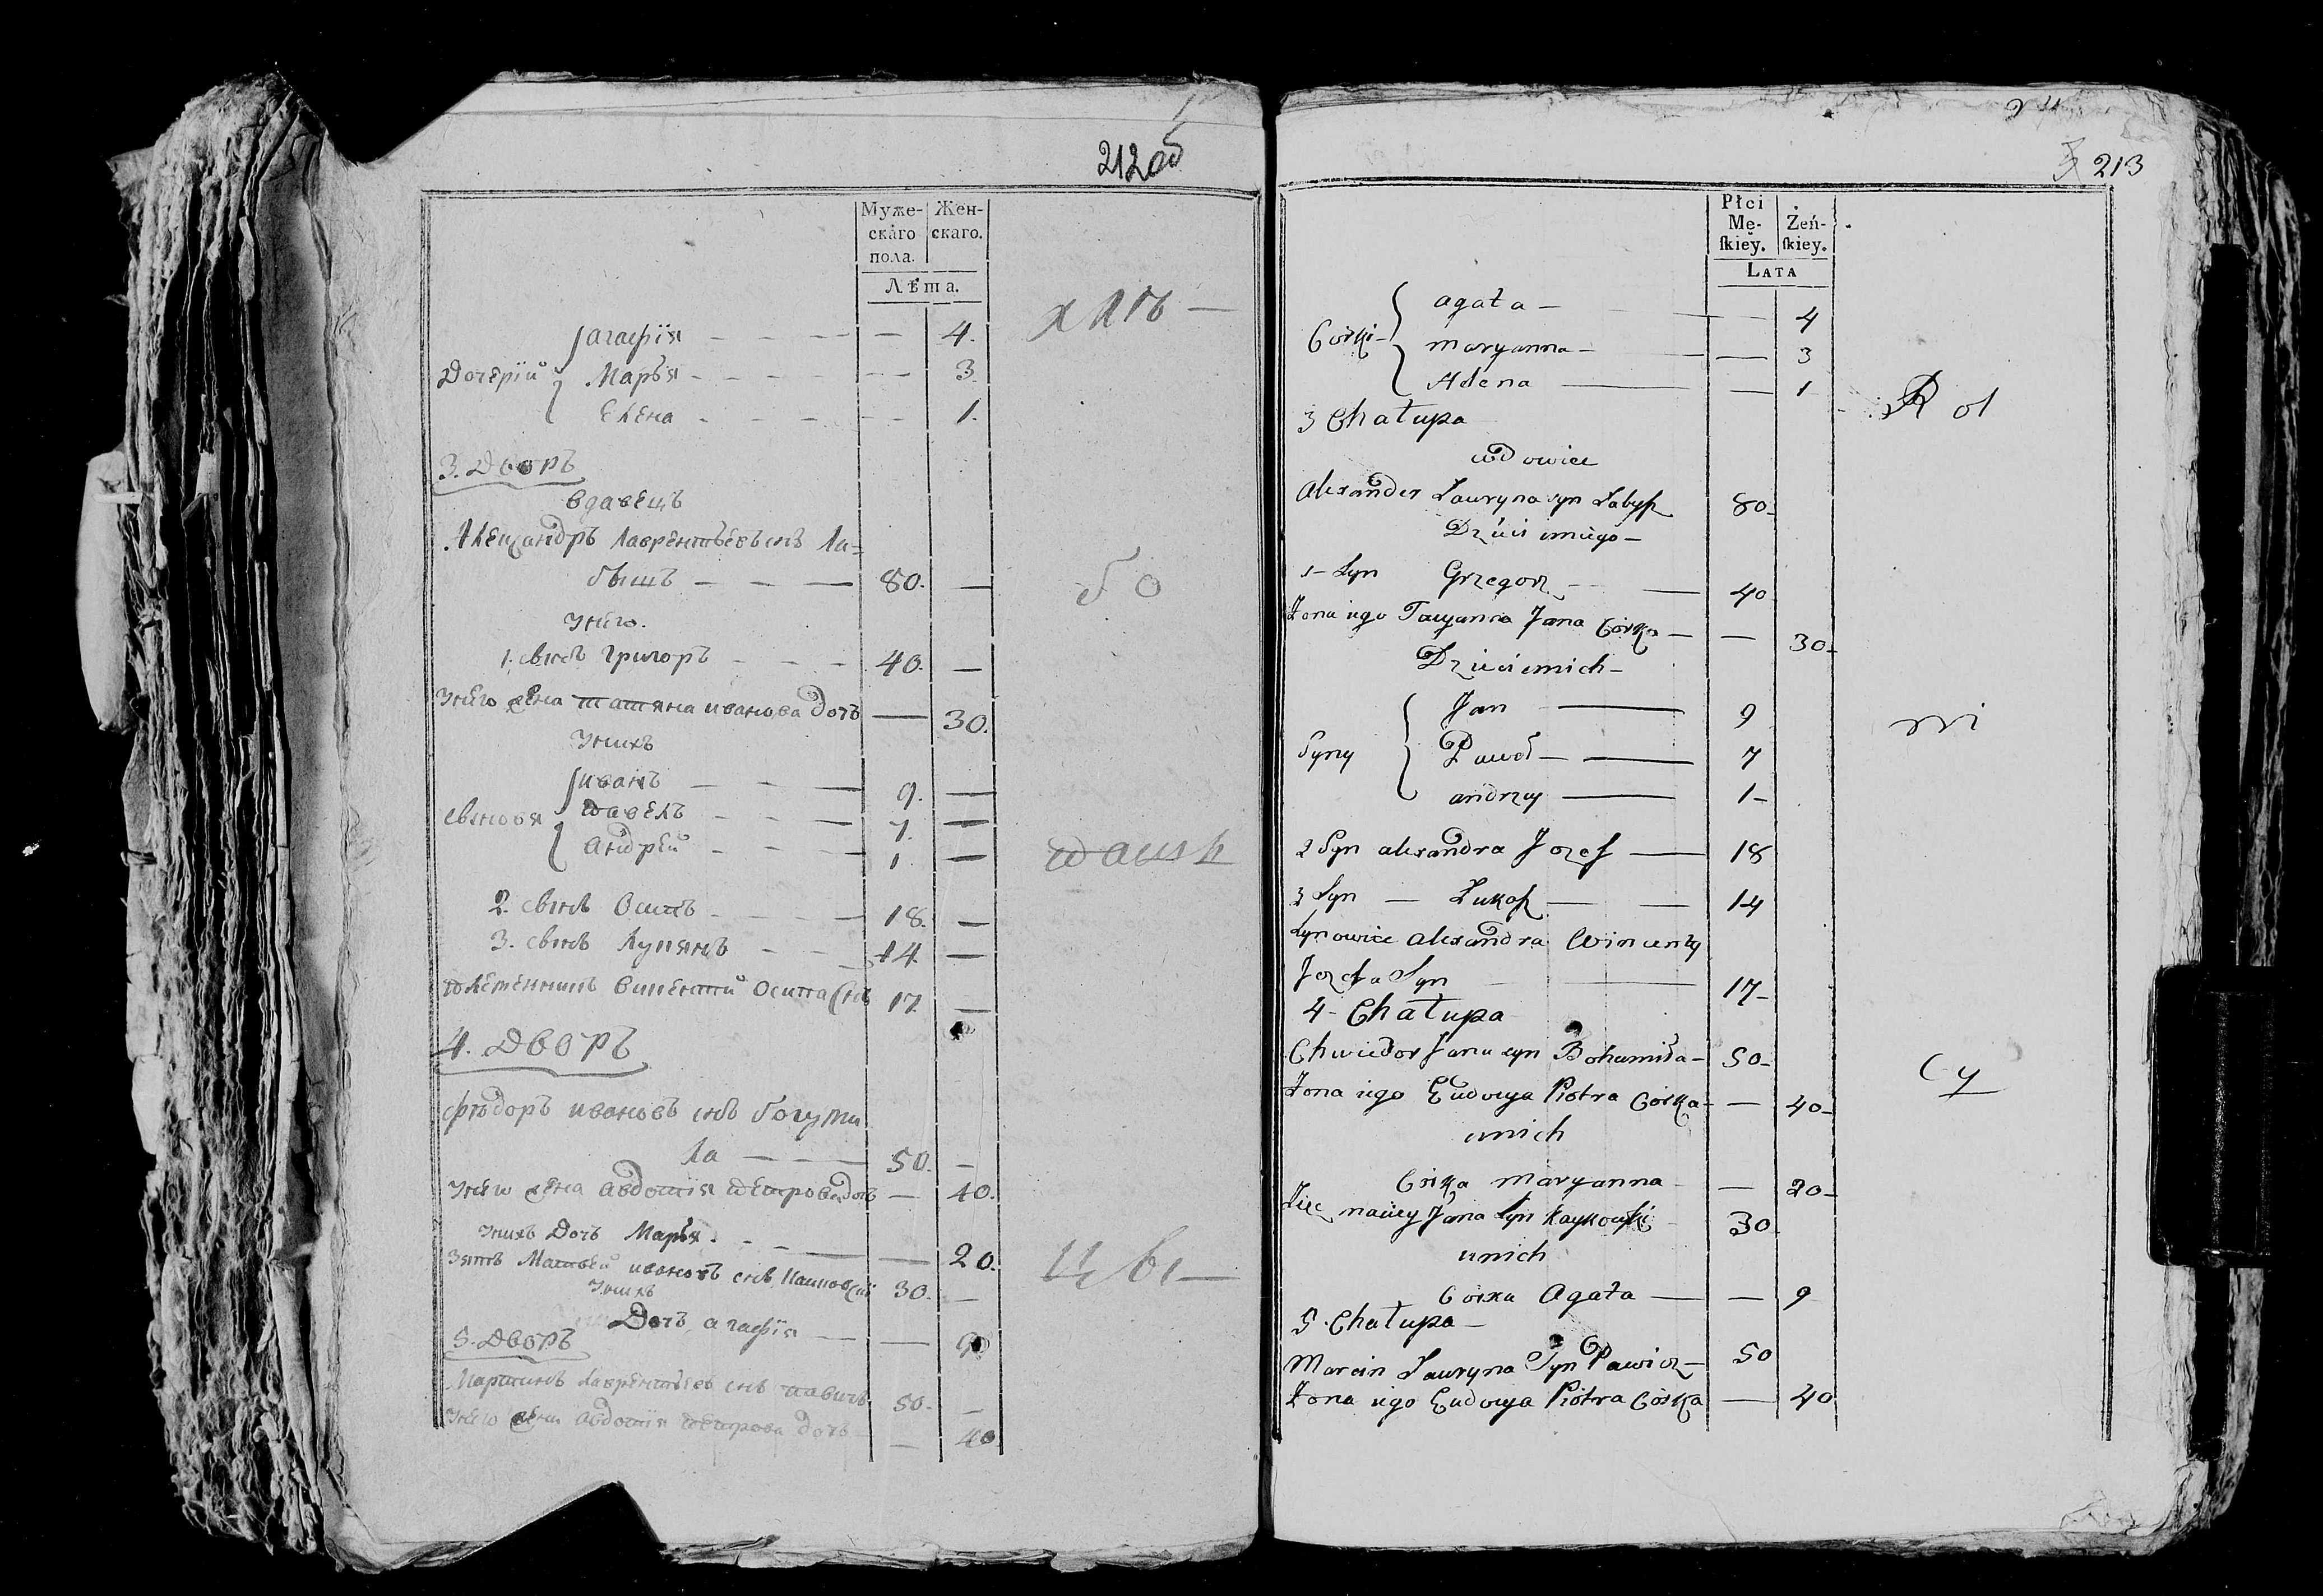 212об
Муже-
скаго
пола.
Жен-
скаго.
Лѣта.
хлѣ—
Дочерій
агафія — 4.
Марья — 3.
Елена — 1.
3. Дворъ
вдавецъ
Александръ Лаврентьевъ снъ Ла=
бышъ — 80. —
У него.
1. сынъ Григоръ — 40. —
У него жена татяна иванова дочь — 30.
У нихъ
сыновя
иванъ — 9. —
павелъ — 7. —
андрей — 1. —
2. сынъ Осипъ — 18. —
3. сынъ Лукянъ — 14 —
племенникъ винентий осипа снъ 17. —
4. Дворъ
федоръ ивановъ снъ богуми
ла — 50. —
У него жена авдотія петрова дочь — 40.
У нихъ Дочь Марья. — 20.
Зять Матвей ивановъ снъ 30. —
У нихъ
Дочь агафія — 9
5. Дворъ
Мартинъ Лаврентьевъ снъ павичъ 50. —
У него жена авдотія петрова дочь — 40
бо
пашъ
цы—
213
Płci
Mę-
skiey.
Żeń-
skiey.
Lata
Corki
agata — 4
maryanna — 3
Alena — 1
3 Chałupa
wdowiec
Alexander Ławryna syn Łabysz 80
Dzieci uniego —
1 — Syn Grzegorz — 40
Żona iego Tacyanna Jana Corka — 30
Dzieci unich —
Syny
Jan — 9
Paweł — 7
andrzey — 1 —
2 Syn alexandra Jozef — 18
3 Syn — Łukasz — 14
Synowiec alexandra Wincenty
Jozefa Syn — 17 —
4 — Chałupa
Chwiedor Jana syn Bohumiła — 50 —
Żona iego Eudocya Piotra Corka — 40 —
unich
Corka maryanna — 20 —
Jana Syn 30
unich
Corka Agata — 9
5. Chałupa —
Marcin Ławryna Syn Pawicz — 50
Żona iego Eudocya Piotra Corka — 40
Rol
ni
cy